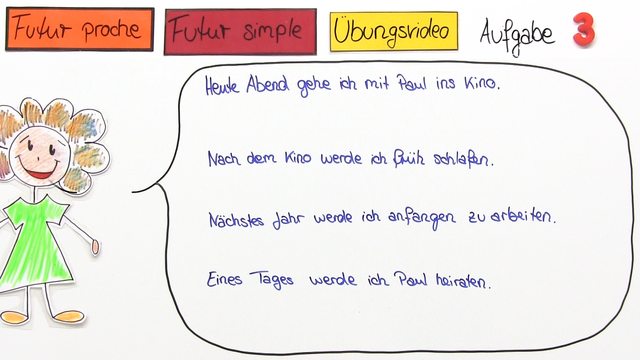 Futur proche Futur simple Übungsvideo Aufgabe 3
Heute Abend gehe ich mit Paul ins Kino.
Nach dem Kino werde ich früh schlafen.
Nächstes Jahr werde ich anfangen zu arbeiten.
Eines Tages werde ich Paul heiraten.